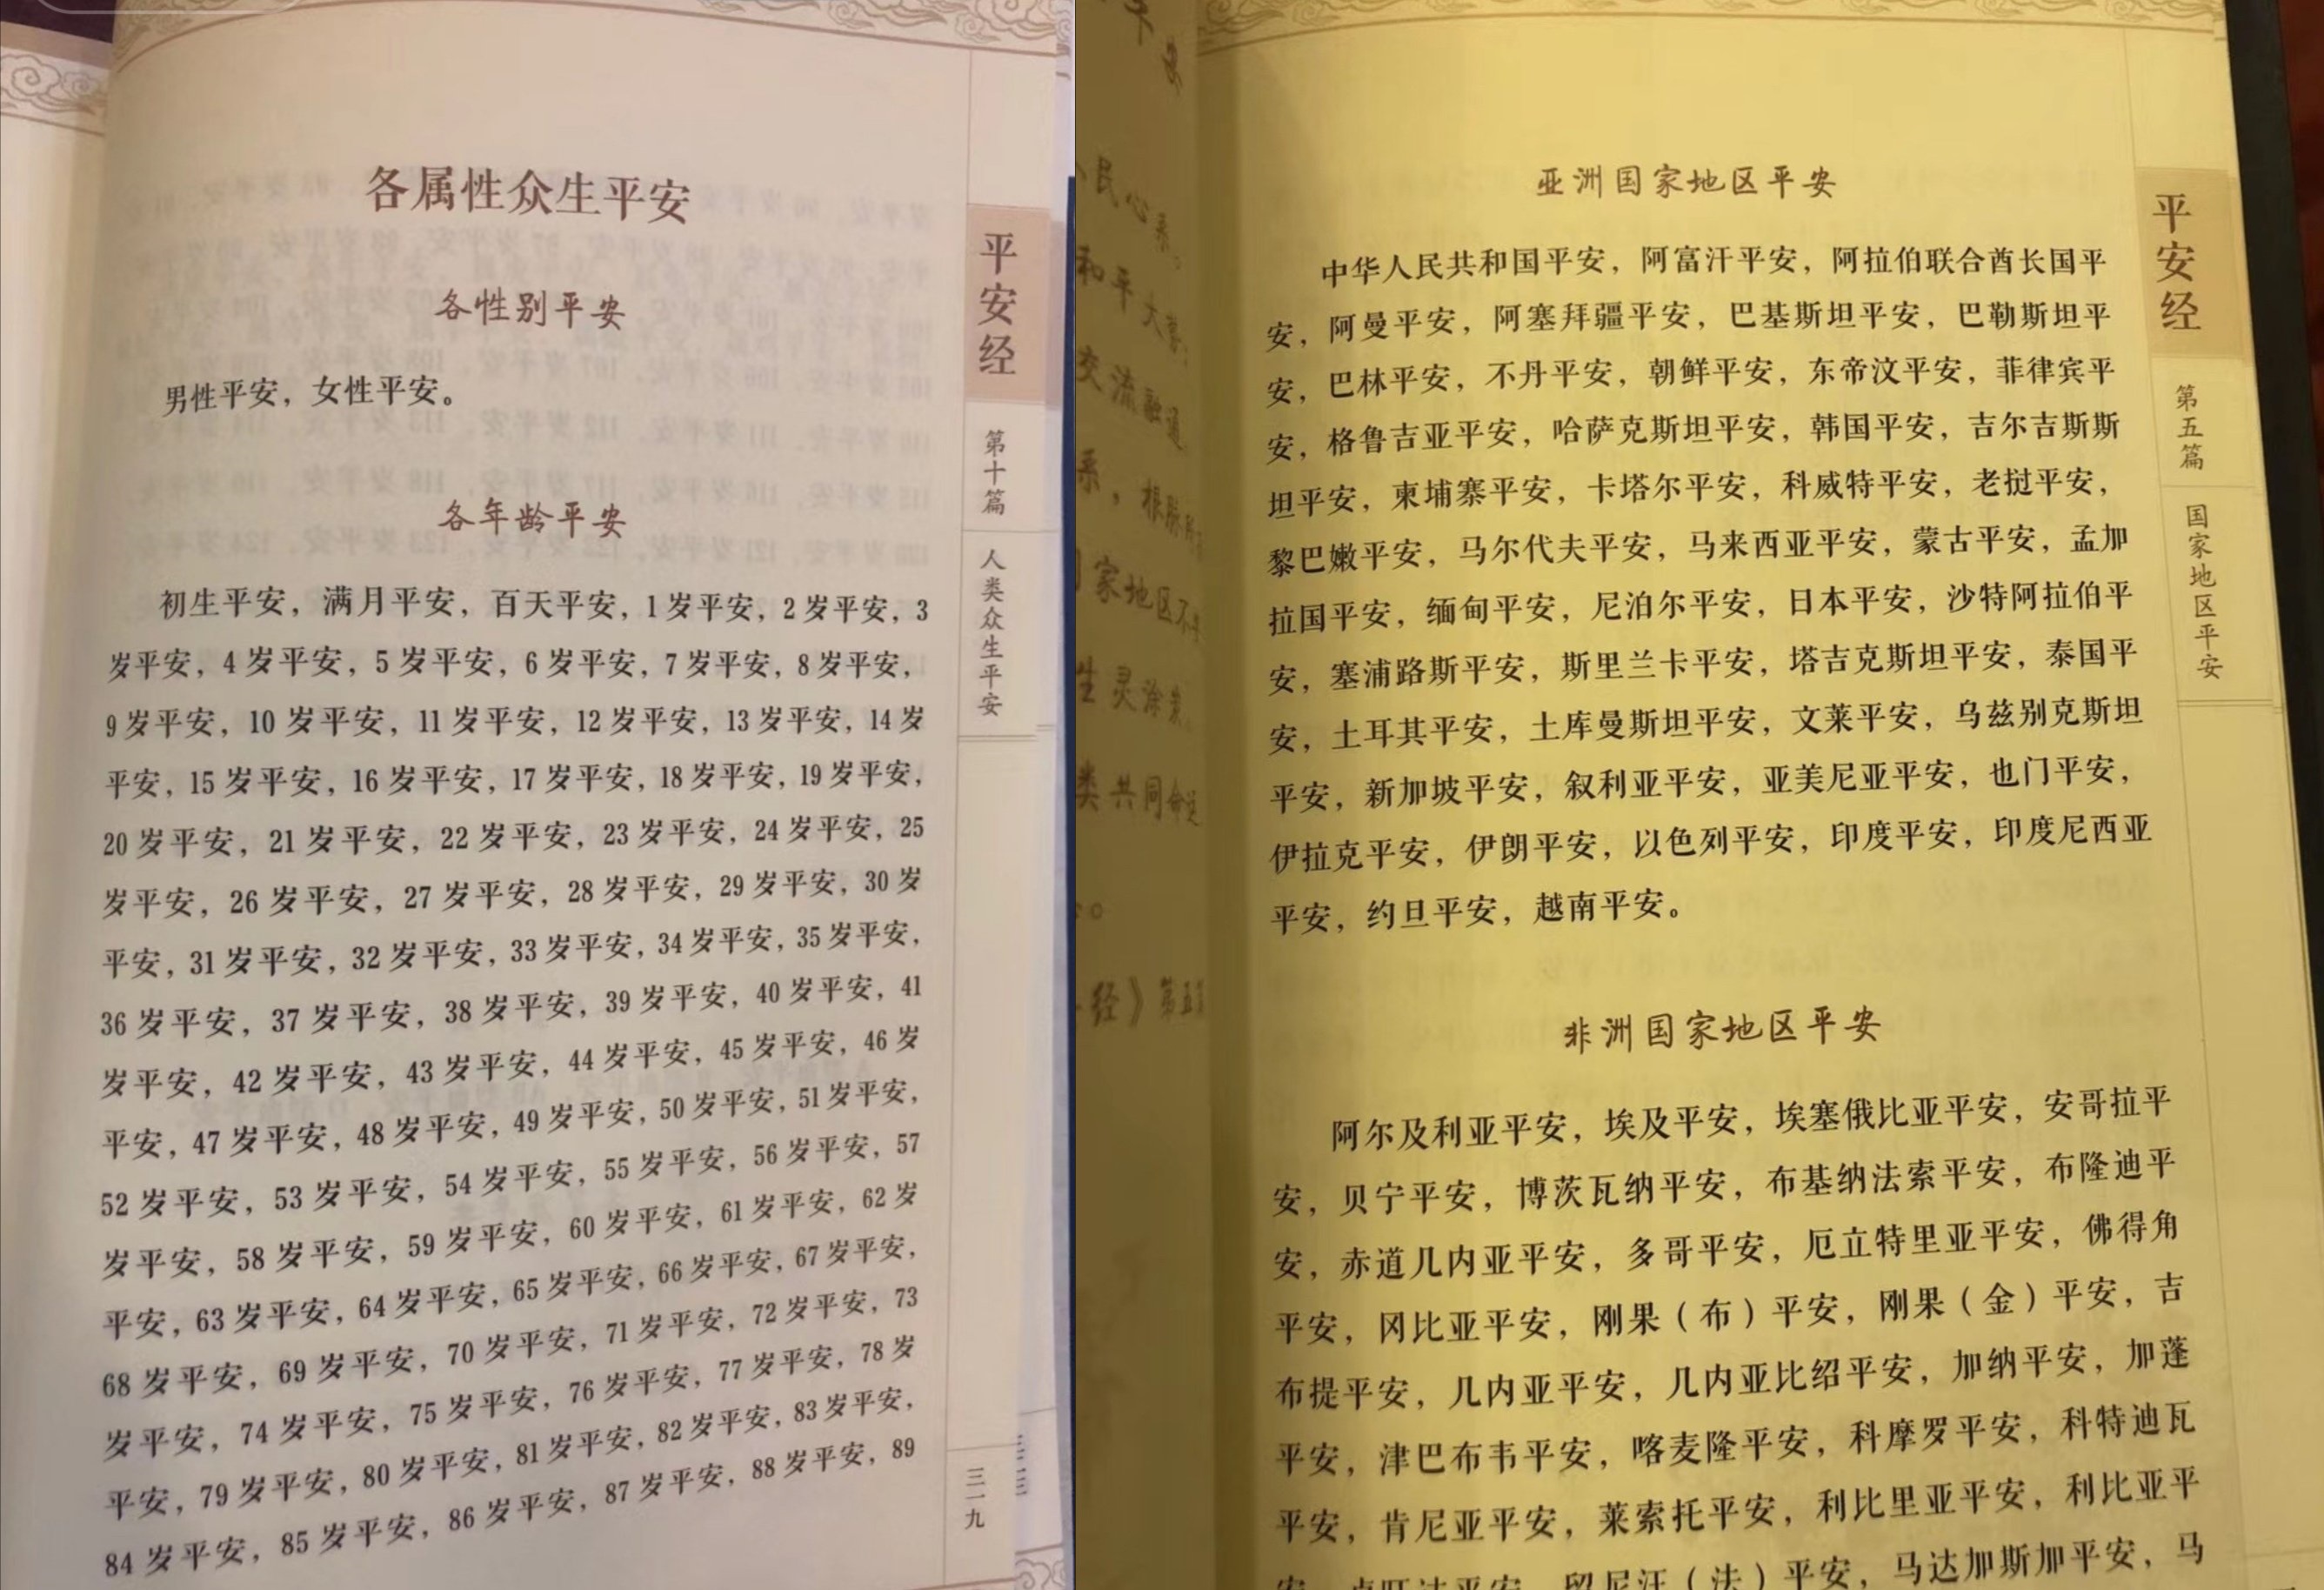 各属性众生平安
各性别平安
男性平安，女性平安。
各年龄平安
初生平安，满月平安，百天平安，1岁平安，2岁平安，3
岁平安，4岁平安，5岁平安，6岁平安，7岁平安，8岁平安，
9岁平安，10岁平安，11岁平安，12岁平安，13岁平安，14岁
平安，15岁平安，16岁平安，17岁平安，18岁平安，19岁平安，
20岁平安，21岁平安，22岁平安，23岁平安，24岁平安，25
岁平安，26岁平安，27岁平安，28岁平安，29岁平安，30岁
平安，31岁平安，32岁平安，33岁平安，34岁平安，35岁平安，
36岁平安，37岁平安，38岁平安，39岁平安，40岁平安，41
岁平安，42岁平安，43岁平安，44岁平安，45岁平安，46岁
平安，47岁平安，48岁平安，49岁平安，50岁平安，51岁平安，
52岁平安，53岁平安，54岁平安，55岁平安，56岁平安，57
岁平安，58岁平安，59岁平安，60岁平安，61岁平安，62岁
平安，63岁平安，64岁平安，65岁平安，66岁平安，67岁平安，
68岁平安，69岁平安，70岁平安，71岁平安，72岁平安，73
岁平安，74岁平安，75岁平安，76岁平安，77岁平安，78岁
平安，79岁平安，80岁平安，81岁平安，82岁平安，83岁平安，
84岁平安，85岁平安，86岁平安，87岁平安，88岁平安，89
平安经
第十篇
人类众生平安
三一九
民心系。
和平大事
交流融通
系，根脉所
家地区不
生灵涂炭
类共同命运
经》第五篇
亚洲国家地区平安
中华人民共和国平安，阿富汗平安，阿拉伯联合酋长国平
安，阿曼平安，阿塞拜疆平安，巴基斯坦平安，巴勒斯坦平
安，巴林平安，不丹平安，朝鲜平安，东帝汶平安，菲律宾平
安，格鲁吉亚平安，哈萨克斯坦平安，韩国平安，吉尔吉斯斯
坦平安，柬埔寨平安，卡塔尔平安，科威特平安，老挝平安，
黎巴嫩平安，马尔代夫平安，马来西亚平安，蒙古平安，孟加
拉国平安，缅甸平安，尼泊尔平安，日本平安，沙特阿拉伯平
安，塞浦路斯平安，斯里兰卡平安，塔吉克斯坦平安，泰国平
安，土耳其平安，土库曼斯坦平安，文莱平安，乌兹别克斯坦
平安，新加坡平安，叙利亚平安，亚美尼亚平安，也门平安，
伊拉克平安，伊朗平安，以色列平安，印度平安，印度尼西亚
平安，约旦平安，越南平安。
非洲国家地区平安
阿尔及利亚平安，埃及平安，埃塞俄比亚平安，安哥拉平
安，贝宁平安，博茨瓦纳平安，布基纳法索平安，布隆迪平
安，赤道几内亚平安，多哥平安，厄立特里亚平安，佛得角
平安，冈比亚平安，刚果（布）平安，刚果（金）平安，吉
布提平安，几内亚平安，几内亚比绍平安，加纳平安，加蓬
平安，津巴布韦平安，喀麦隆平安，科摩罗平安，科特迪瓦
平安，肯尼亚平安，莱索托平安，利比里亚平安，利比亚平
安，卢旺达平安，留尼汪（法）平安，马达加斯加平安，马
平安经
第五篇
国家地区平安